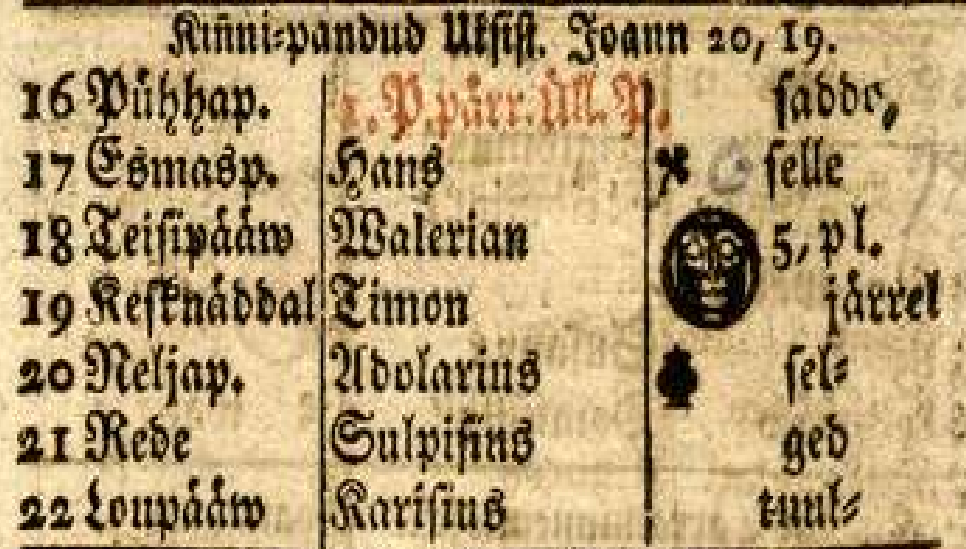 Kiñni-pandud Uksist. Joann 20, 19.
16 Pühhap. 1. P. pärr. Üll. P. saddo,
17 Esmasp. Hans selle
18 Teisipääw Walerian 5, pl.
19 Kesknäddal Timon järrel
20 Neljap. Adolarius sel-
21 Rede Sulpisius
ged
22 Loupääw Karisius tunl-